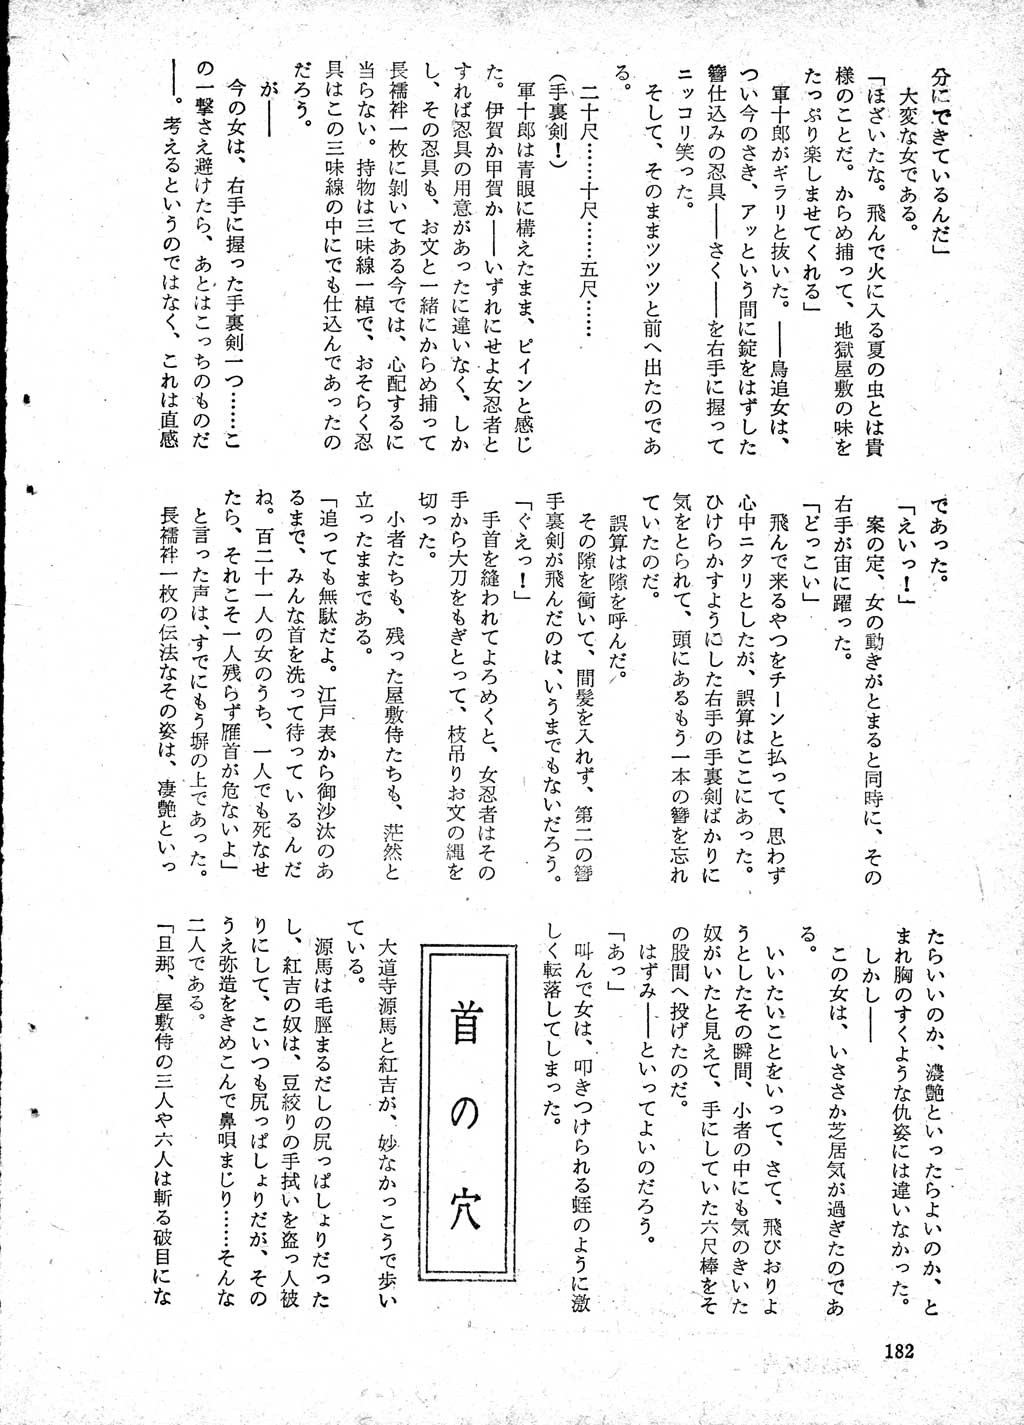 分にできているんだ」
　大変な女である。
「ほざいたな。飛んで火に入る夏の虫とは貴
様のことだ。からめ捕って、地獄屋敷の味を
たっぷり楽しませてくれる」
　軍十郎がギラリと抜いた。――鳥追女は、
つい今のさき、アッという間に錠をはずした
簪仕込みの忍具――さく――を右手に握って
ニッコリ笑った。
　そして、そのままツツツと前へ出たのであ
る。
　二十尺……十尺……五尺……
（手裏剣！）
　軍十郎は青眼に構えたまま、ピインと感じ
た。伊賀か甲賀か――いずれにせよ女忍者と
すれば忍具の用意があったに違いなく、しか
し、その忍具も、お文と一緒にからめ捕って
長襦袢一枚に剝いてある今では、心配するに
当らない。持物は三味線一棹で、おそらく忍
具はこの三味線の中にでも仕込んであったの
だろう。
　が――
　今の女は、右手に握った手裏剣一つ……こ
の一撃さえ避けたら、あとはこっちのものだ
――。考えるというのではなく、これは直感
であった。
「えいっ！」
　案の定、女の動きがとまると同時に、その
右手が宙に躍った。
「どっこい」
　飛んで来るやつをチーンと払って、思わず
心中ニタリとしたが、誤算はここにあった。
ひけらかすようにした右手の手裏剣ばかりに
気をとられて、頭にあるもう一本の簪を忘れ
ていたのだ。
　誤算は隙を呼んだ。
　その隙を衝いて、間髪を入れず、第二の簪
手裏剣が飛んだのは、いうまでもないだろう。
「ぐえっ！」
　手首を縫われてよろめくと、女忍者はその
手から大刀をもぎとって、枝吊りお文の縄を
切った。
　小者たちも、残った屋敷侍たちも、茫然と
立ったままである。
「追っても無駄だよ。江戸表から御沙汰のあ
るまで、みんな首を洗って待っているんだ
ね。百二十一人の女のうち、一人でも死なせ
たら、それこそ一人残らず雁首が危ないよ」
　と言った声は、すでにもう塀の上であった。
　長襦袢一枚の伝法なその姿は、凄艶といっ
たらいいのか、濃艶といったらよいのか、と
まれ胸のすくような仇姿には違いなかった。
　しかし――
　この女は、いささか芝居気が過ぎたのであ
る。
　いいたいことをいって、さて、飛びおりよ
うとしたその瞬間、小者の中にも気のきいた
奴がいたと見えて、手にしていた六尺棒をそ
の股間へ投げたのだ。
　はずみ――といってよいのだろう。
「あっ」
　叫んで女は、叩きつけられる蛭のように激
しく転落してしまった。
首の穴
　大道寺源馬と紅吉が、妙なかっこうで歩い
ている。
　源馬は毛脛まるだしの尻っぱしょりだった
し、紅吉の奴は、豆絞りの手拭いを盗っ人被
りにして、こいつも尻っぱしょりだが、その
うえ弥造をきめこんで鼻唄まじり……そんな
二人である。
「旦那、屋敷侍の三人や六人は斬る破目にな
182